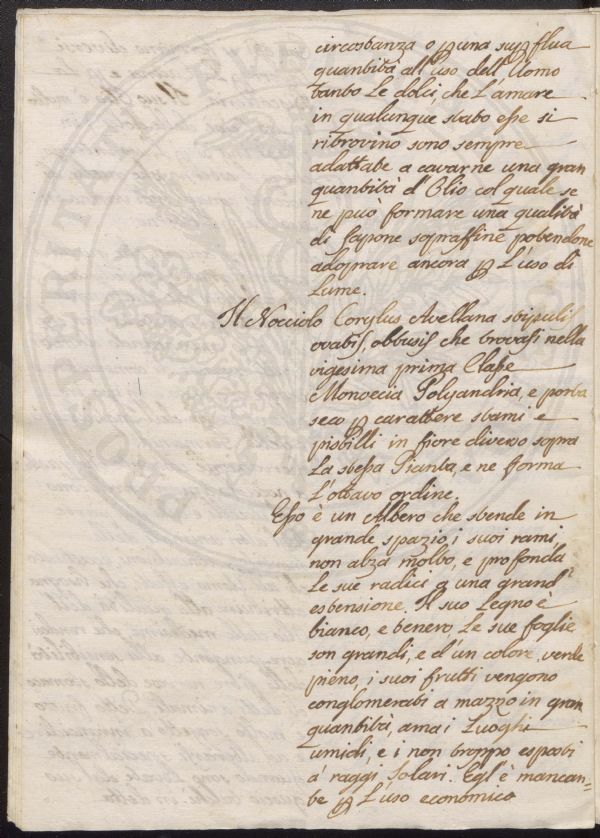 circostanza o p una supflua
quantità all'uso dell'Uomo
tanto Le dolci, che L'amare
in qualunque stato esse si
ritrovino sono sempre
adattate a cavarne una gran
quantità d'Olio col quale se
ne può formare una qualità
di sapone sopraffine potendone
adoprare ancora p L'uso di
Lume.
Il Nocciolo Corylus Avellana stipulis
ovatis, obtusis che trovasi nella
vigesima prima Classe
Monoecia Polyandria, e porta
seco p carattere stami e
pistilli in fiore diverso sopra
La stessa Pianta, e ne forma
L'ottavo ordine.
Esso è un Albero che stende in
grande spazio i suoi rami,
non alza molto, e profonda
Le sue radici a una grand'
estensione. Il suo Legno è
bianco, e tenero, Le sue foglie
son grandi, e d'un colore verde
pieno, i suoi frutti vengono
conglomerati a mazzo in gran
quantità, ama i Luoghi
umidi, e i non troppo esposti
a' raggi Solari. Egl'è mancan-
te p L'uso economico